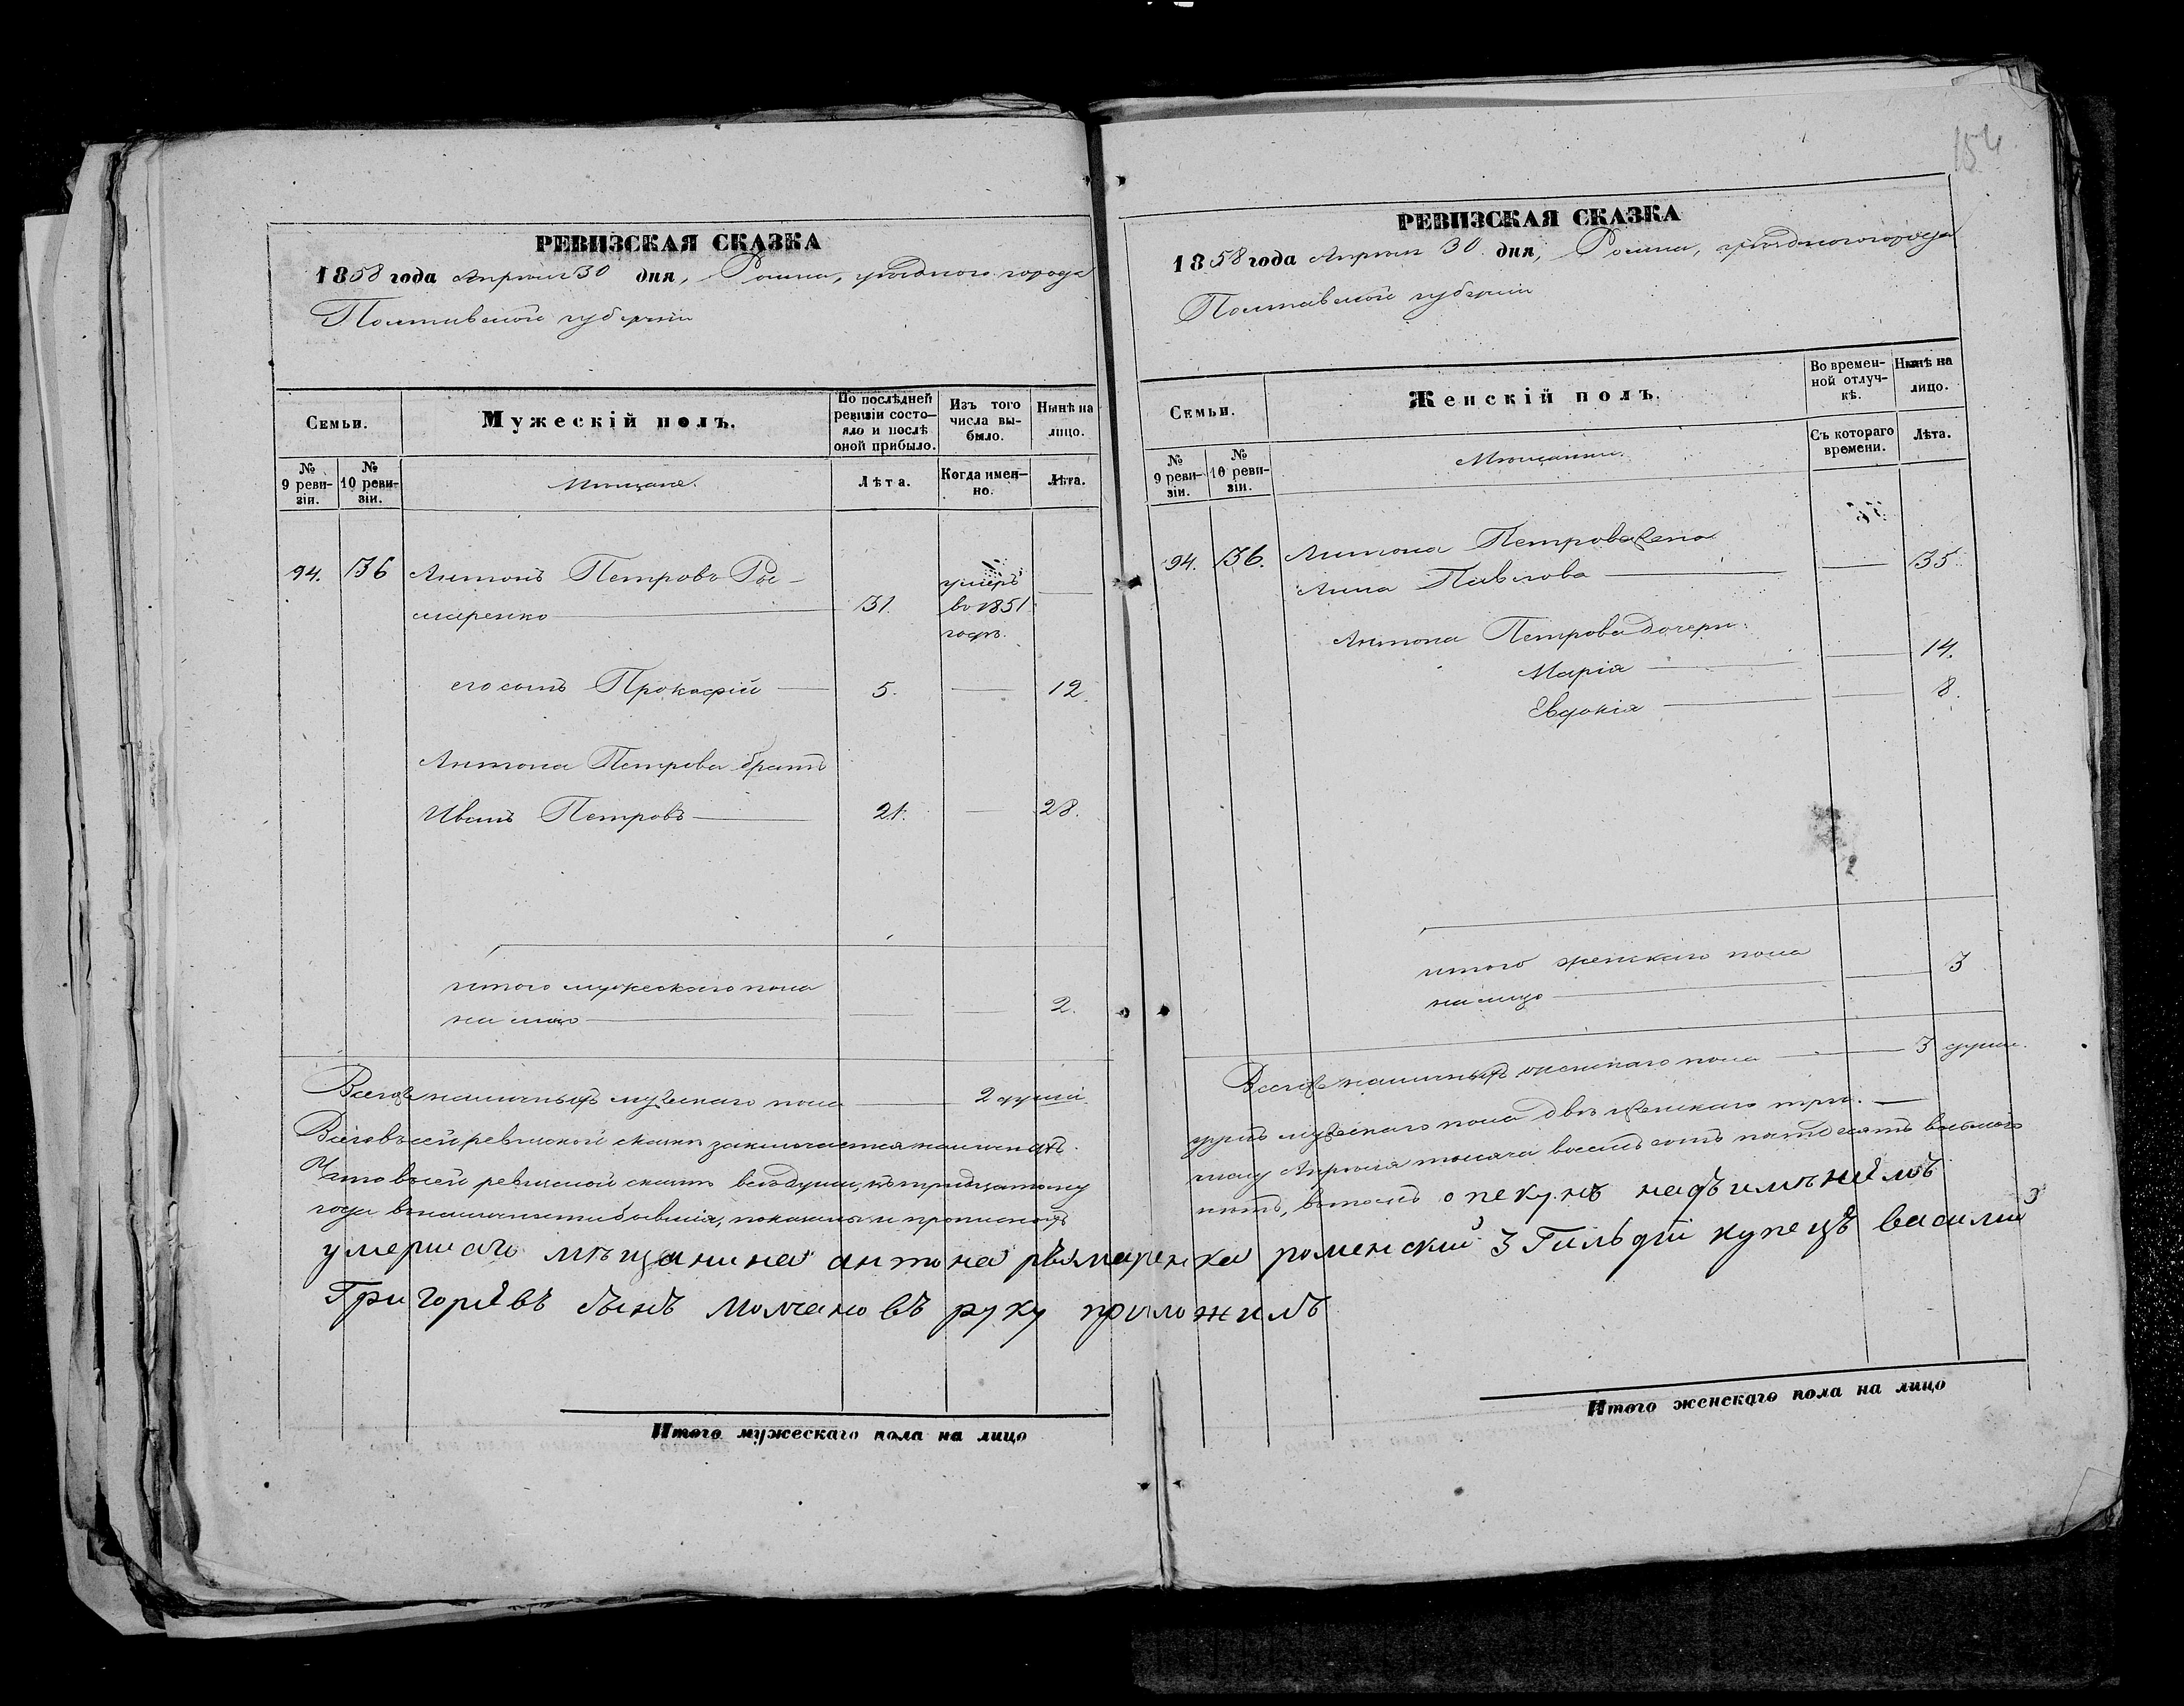 РЕВИЗСКАЯ СКАЗКА
1858 года Апрѣля 30 дня, Ромна, уѣзднаго города
Полтавской губерніи
Семьи.
Мужескій полъ.
По послѣдней ревизіи состояло и послѣ оной прибыло.
Изъ того числа выбыло.
Нынѣ на лицо.
№ 9 ревизіи.
№ 10 ревизіи.
Мѣщане.
Лѣта.
Когда именно.
Лѣта.
94. 136 Антонъ Петровъ Ры-
маренко 31. умеръ
въ 1851
годѣ.
его сынъ Прокофій 5. 12.
Антона Петрова братъ
Иванъ Петровъ 21. 28.
итого мужескаго пола
на лицо 2.
Всего наличныхъ мужескаго пола 2 души.
Всего в сей ревизской сказкѣ заключается наличныхъ
Что в сей ревизской сказкѣ всѣ души, къ тридцатому
года в наличности бывшія, показаны и прописныхъ
умершаго мѣщанина антона рымаренка
Григорїевъ сынъ Молчановъ руку приложилъ
Итого мужескаго пола на лицо
154
РЕВИЗСКАЯ СКАЗКА
1858 года Апрѣля 30 дня, Ромна, уѣзднаго города
Полтавской губерніи
Семьи.
Женскій полъ.
Во временной отлучкѣ.
Нынѣ на лицо.
№ 9 ревизіи.
№ 10 ревизіи.
Мѣщанки.
Съ котораго времени.
Лѣта.
94. 136. Антона Петрова жена
Анна Павлова 35.
Антона Петрова дочери
Марія 14.
Евдокія 8.
итого женскаго пола
на лицо 3
Всего наличныхъ женскаго пола 3 души.
душъ мужескаго пола двѣ женскаго три.
числу Апрѣля тысяча восемь сотъ пятьдесятъ восьмого
нѣтъ, в томъ опекунъ надъ имѣнїемъ
роменский 3 Гильдїи купецъ василий
Итого женскаго пола на лицо